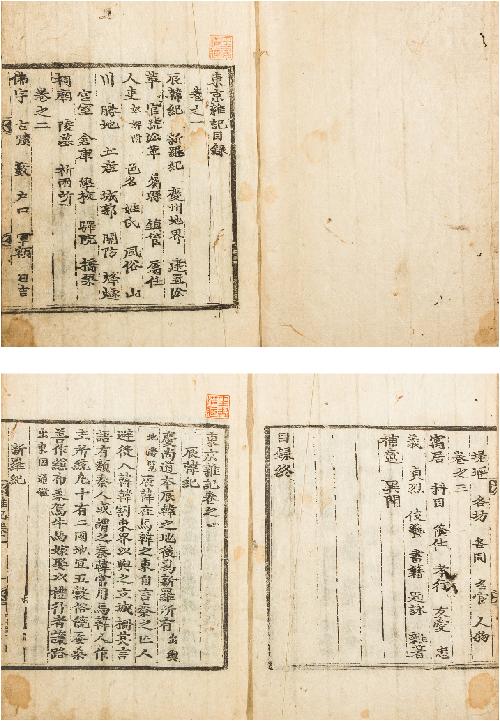 東京雜記目錄
卷之一
辰韓紀 新羅紀 慶州地界 建置沿
革 官號沿革 屬縣 鎮管 屬任
人吏 邑名 姓氏 風俗 山
川 勝地 土産 城郭 關防 烽燧
宮室 倉庫 學校 驛院 橋梁
祠廟 陵墓 祈雨所
卷之二
佛宇 古蹟 藪 戶口 軍額
堤堰 各坊 各同 名宦 人物
卷之三
寓居 科目 蔭仕 孝行 友愛 忠
義 貞烈 伎藝 書籍 題詠 雜著
補遺 異聞
目錄終
東京雜記卷之一
辰韓紀
慶尙道本辰韓之地後爲新羅所有 出輿
地勝覽 辰韓在馬韓之東自言秦之亡人
避役入韓韓割東界以與之立城柵其言
語有類秦人或謂之秦韓常用馬韓人作
主所統凡十有二國地宜五穀俗饒蚕桑
善作縑布乘駕牛馬嫁娶以禮行者讓路
出東國通鑑
新羅紀